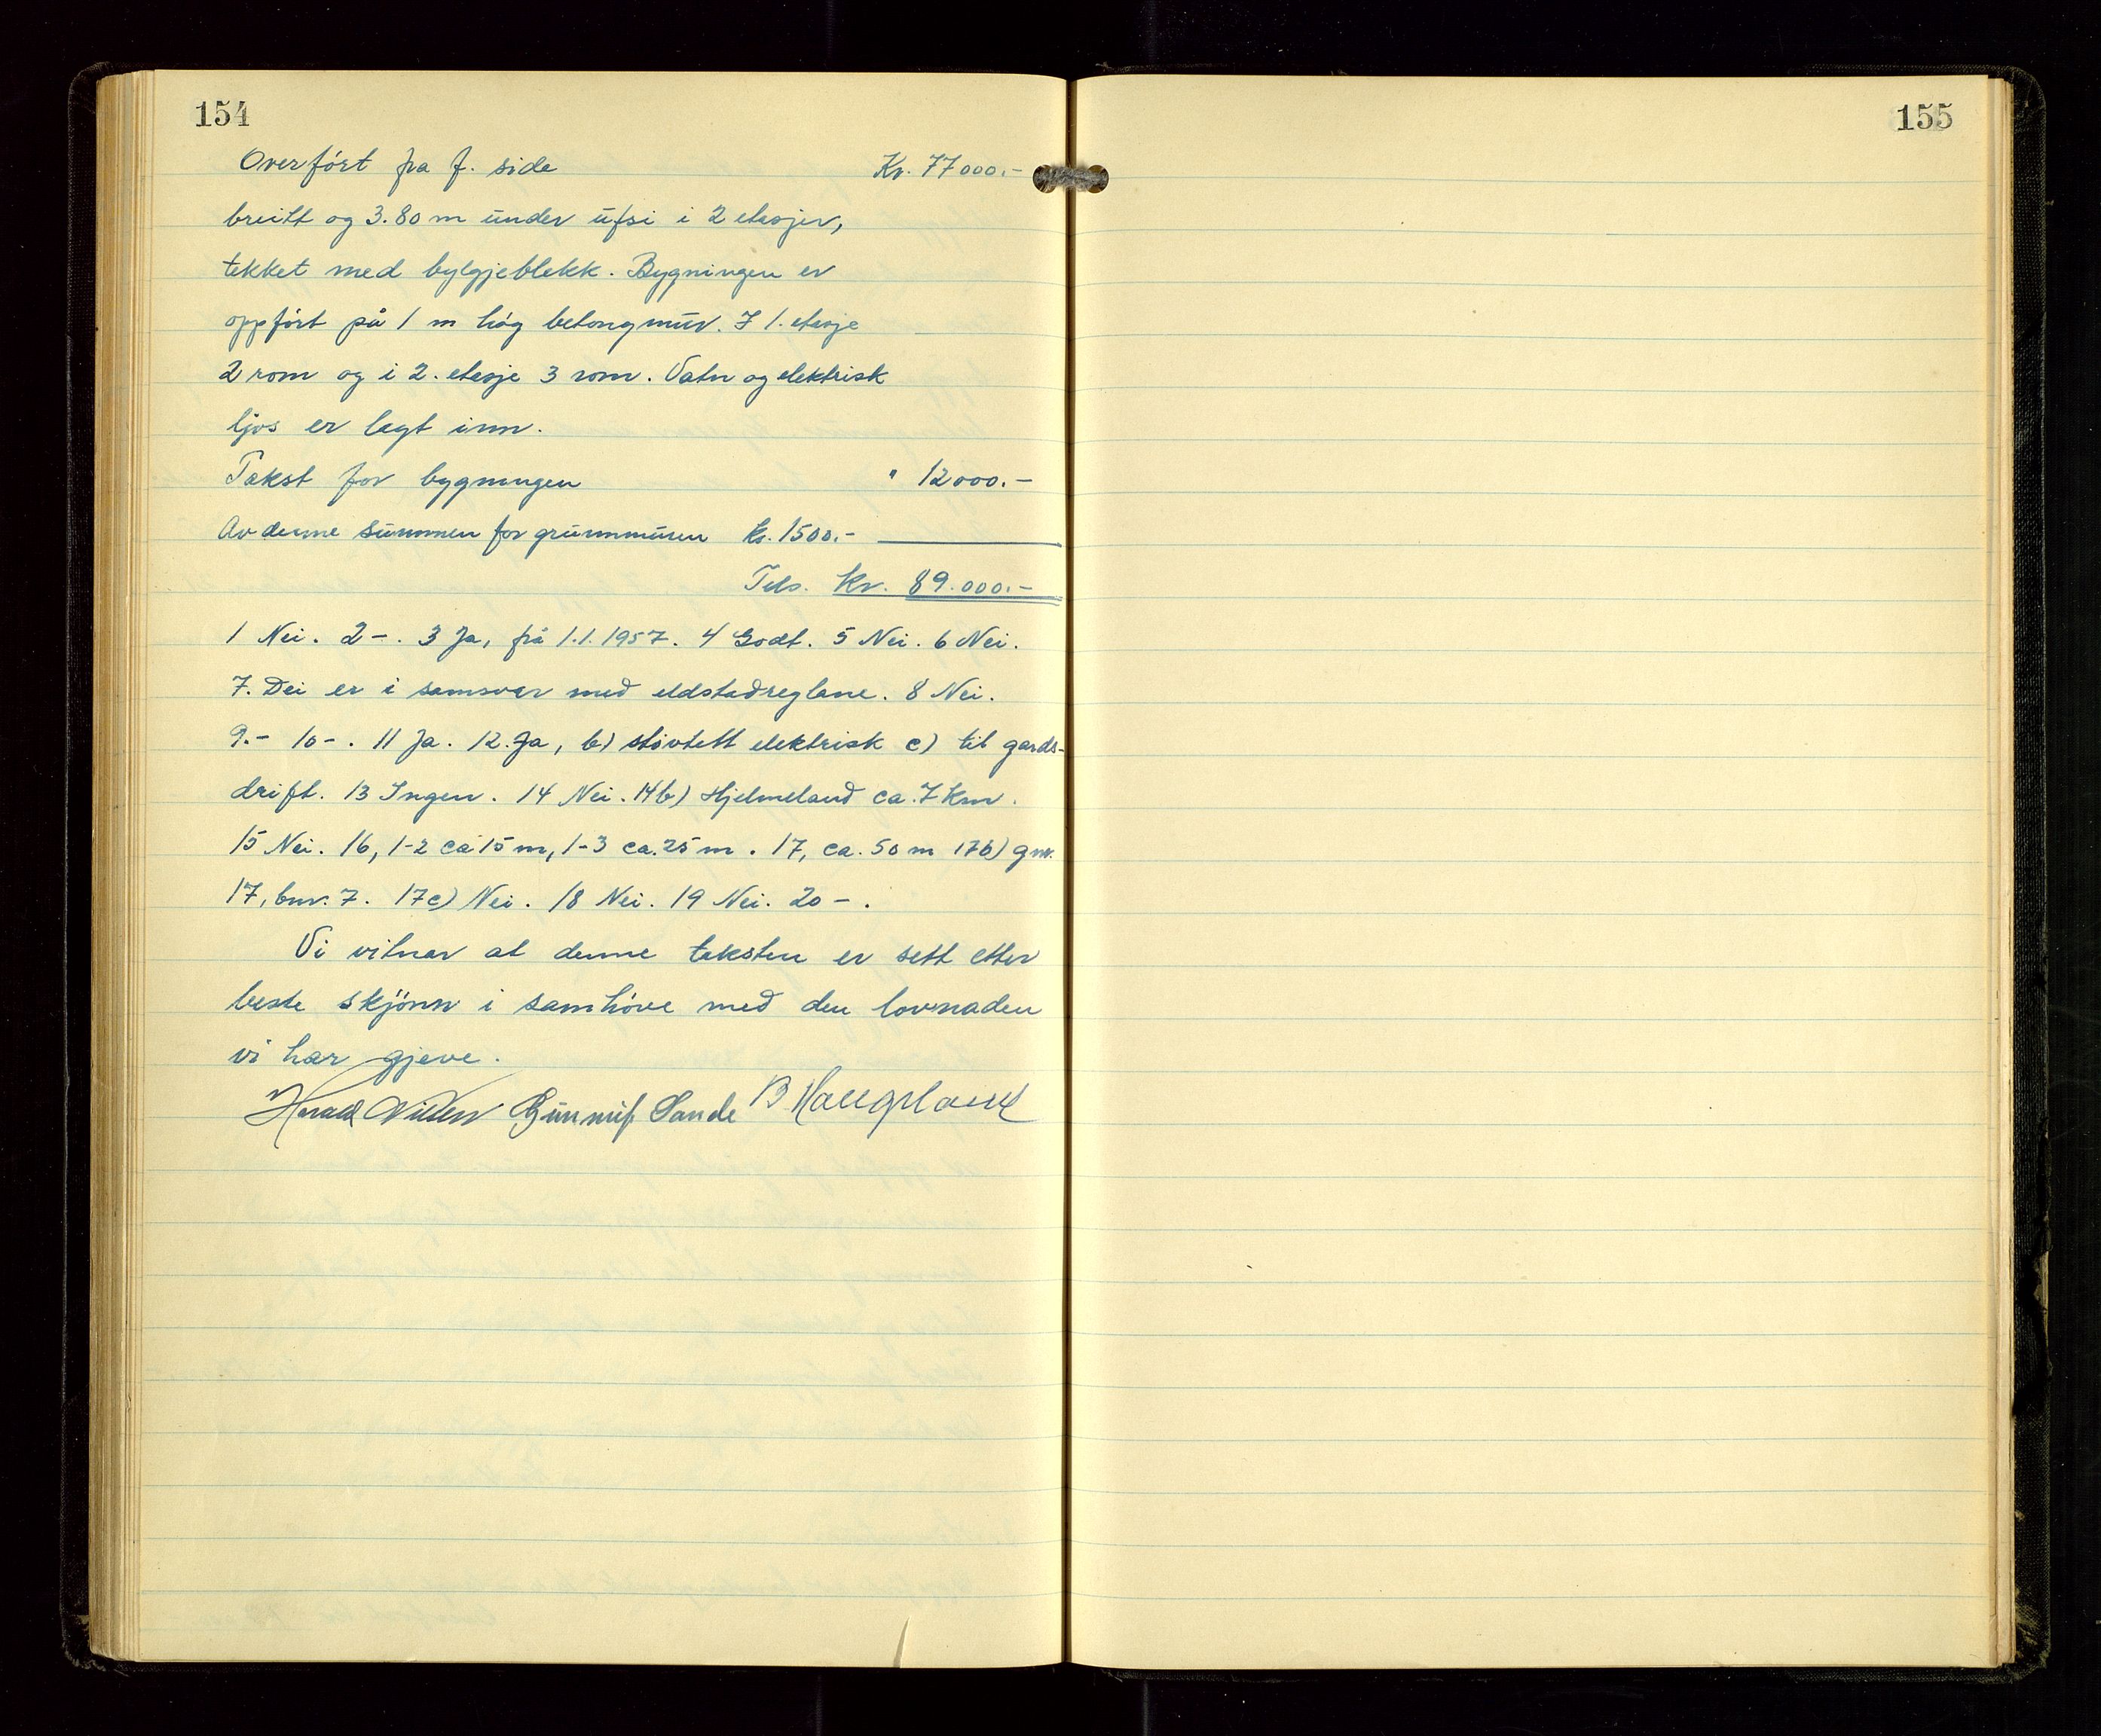 154
Overfört fra f. side Kr. 77000.-
breitt og 3.80 m under ufsi i 2 etasjer,
tekket med bylgjeblekk. Bygningen er
oppfört på 1 m hög betongmur. I 1. etasje
2 rom og i 2. etasje 3 rom. Vatn og elektrisk
ljos er lagt inn.
Takst for bygningen " 12000.-
Av denne summen for grunnmuren kr. 1500.-
Tils. Kr. 89.000.-
1 Nei. 2 -. 3 Ja, frå 1.1.1957. 4 Godt. 5 Nei. 6 Nei.
7. Dei er i samsvar med eldstadreglane. 8 Nei.
9.- 10 -. 11 Ja. 12. Ja, b) stövtett elektrisk c) til gards-
drift. 13 Ingen. 14 Nei. 14b) Hjelmeland ca. 7 km.
15 Nei. 16, 1-2 ca 15 m, 1-3 ca. 25 m. 17, ca. 50 m 17b) gnr.
17, bnr. 7. 17c) Nei. 18 Nei. 19 Nei. 20 -.
Vi vitnar at denne taksten er sett etter
beste skjönn i samhöve med den lovnaden
vi har gjeve.
Harald Gunnulf Sande B Haugsland
155